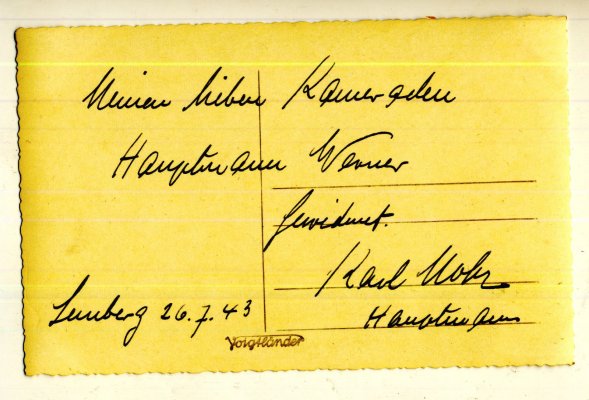 Meinen lieben Kameraden
Hauptmann Werner
gewidmet.
Karl Mohr
Hauptmann
Lemberg 26.7.43
Voigtländer